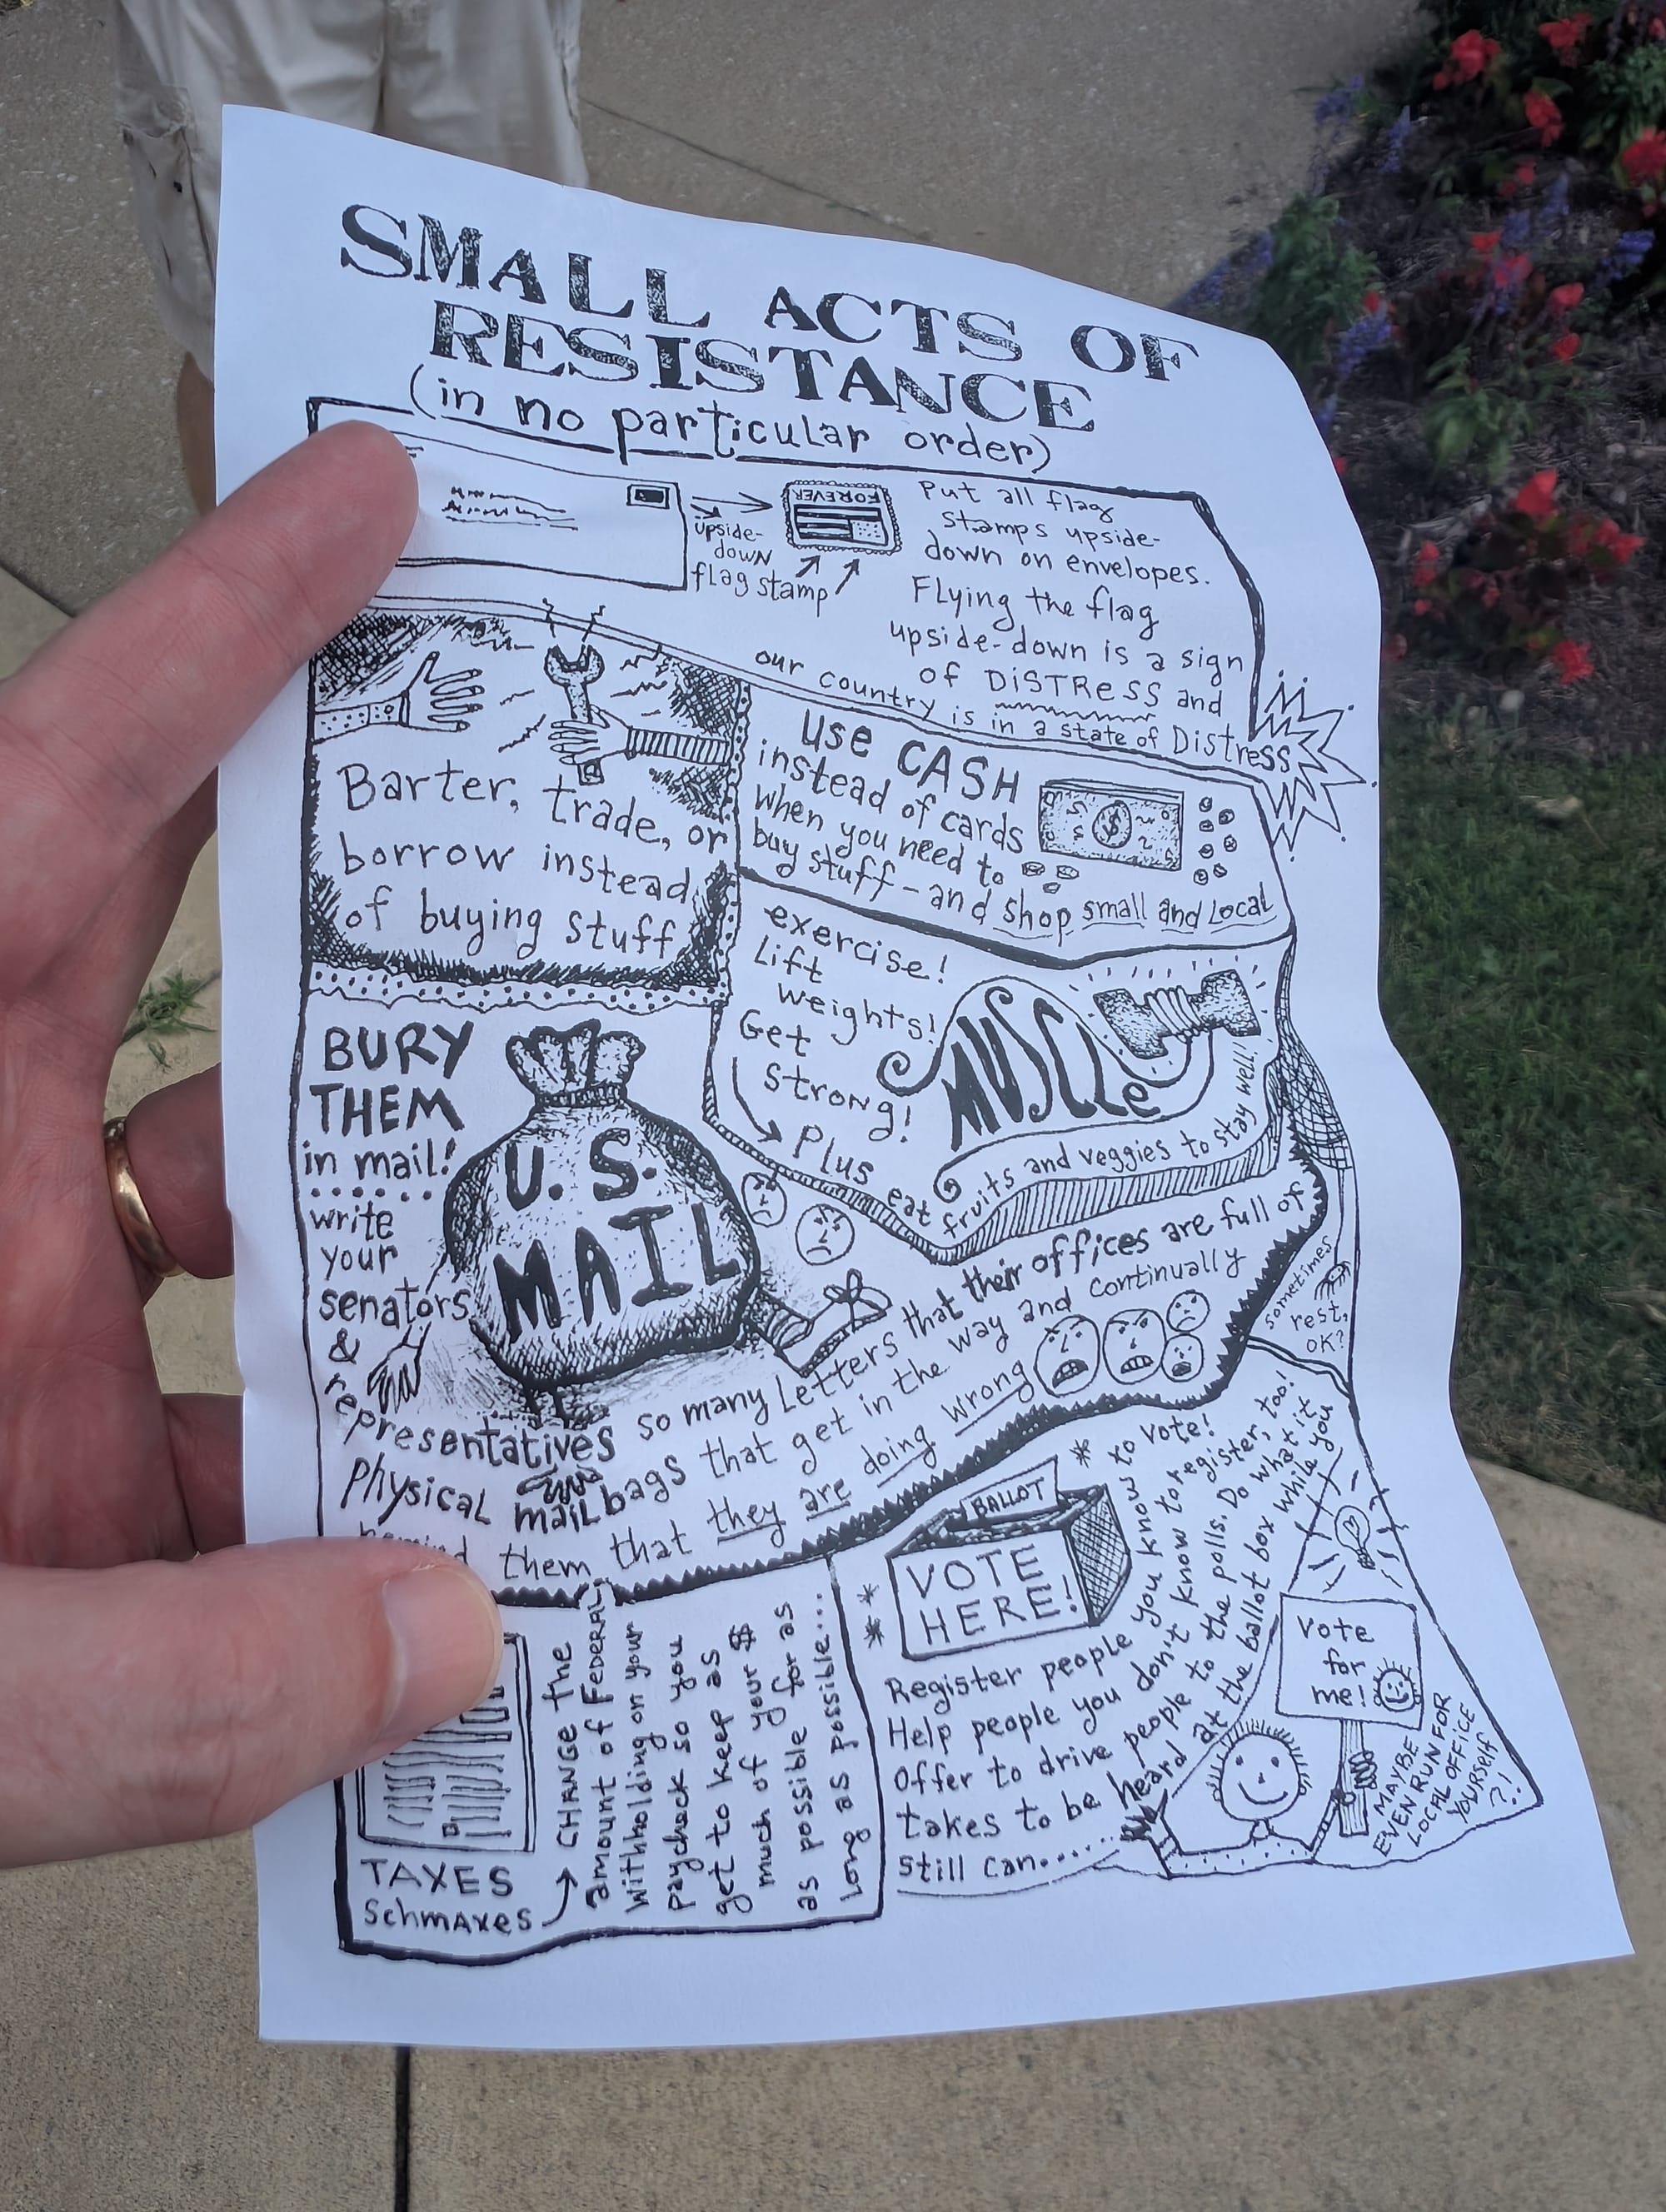 SMALL ACTS OF
RESISTANCE
(in no particular order)
upside-
down
flag stamp
FOREVER
Put all flag
stamps upside-
down on envelopes.
Flying the flag
upside-down is a sign
of DISTRESS and
our country is in a state of Distress
Barter, trade, or
borrow instead
of buying stuff
use CASH
instead of cards
when you need to
buy stuff - and shop small and Local
$
exercise!
Lift
weights!
Get
Strong!
MUSCLe
Plus eat fruits and veggies to stay well!
sometimes
rest,
OK?
BURY
THEM
in mail!
write
your
senators
&
representatives so many Letters that their offices are full of
Physical mailbags that get in the way and continually
remind them that they are doing wrong
U.S.
MAIL
TAXES
SchmAxes
CHANGE the
amount of FEDERAL
withholding on your
paycheck so you
get to keep as
much of your $
as possible for as
Long as possible...
BALLOT
VOTE
HERE!
Register people you know to vote!
Help people you don't know to register, too!
Offer to drive people to the polls. Do what it
takes to be heard at the ballot box while you
still can....
Vote
for
me!
MAYBE
EVEN RUN FOR
LOCAL OFFICE
YOURSELF
?!